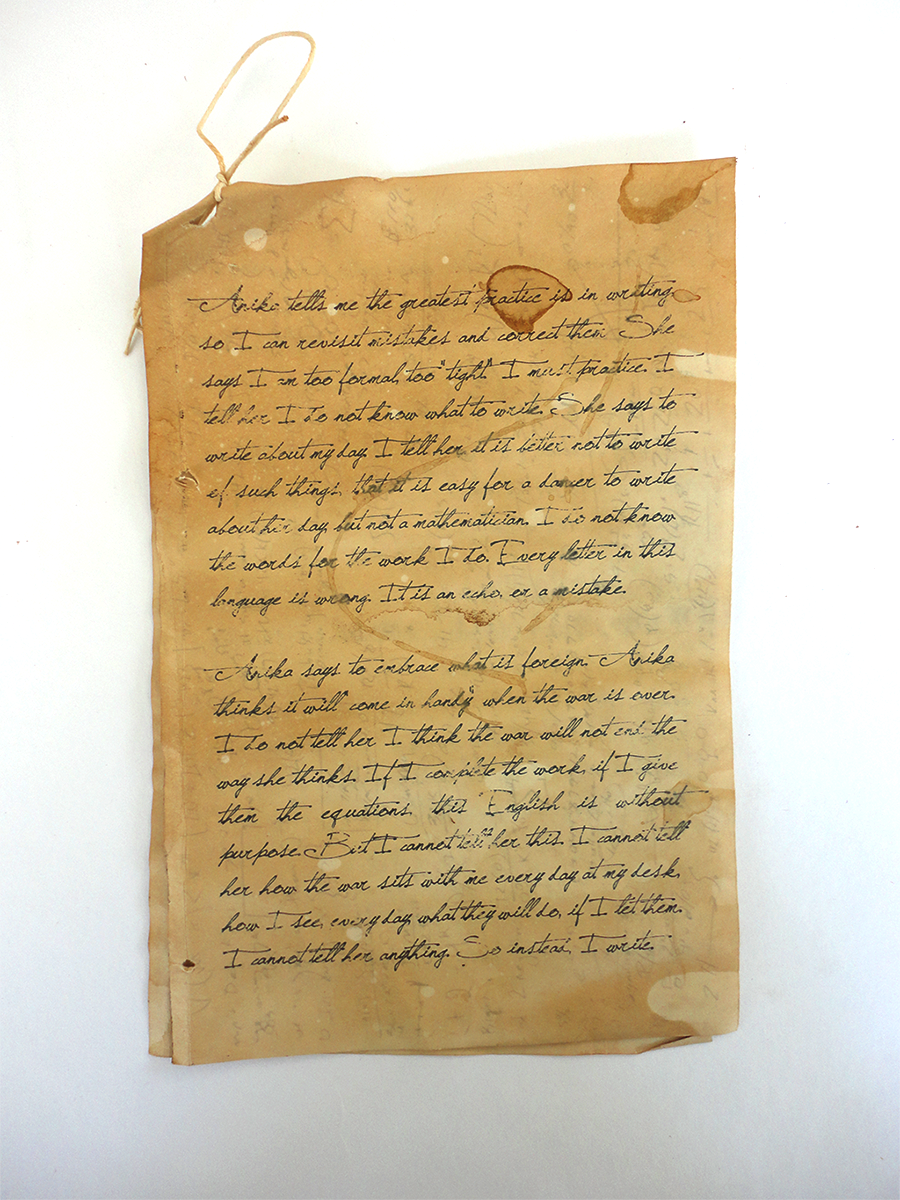 Anika tells me the greatest practice is in writing.
so I can revisit mistakes and correct them. She
says I am too formal, too "tight". I must practice. I
tell her I do not know what to write. She says to
write about my day. I tell her it is better not to write
of such things, that it is easy for a dancer to write
about her day, but not a mathematician. I do not know
the words for the work I do. Every letter in this
language is wrong. It is an echo, or a mistake.
Anika says to embrace what is foreign. Anika
thinks it will "come in handy" when the war is over.
I do not tell her I think the war will not end the
way she thinks. If I complete the work, if I give
them the equations, this English is without
purpose. But I cannot tell her this. I cannot tell
her how the war sits with me every day at my desk,
how I see, every day, what they will do, if I let them.
I cannot tell her anything. So instead, I write.